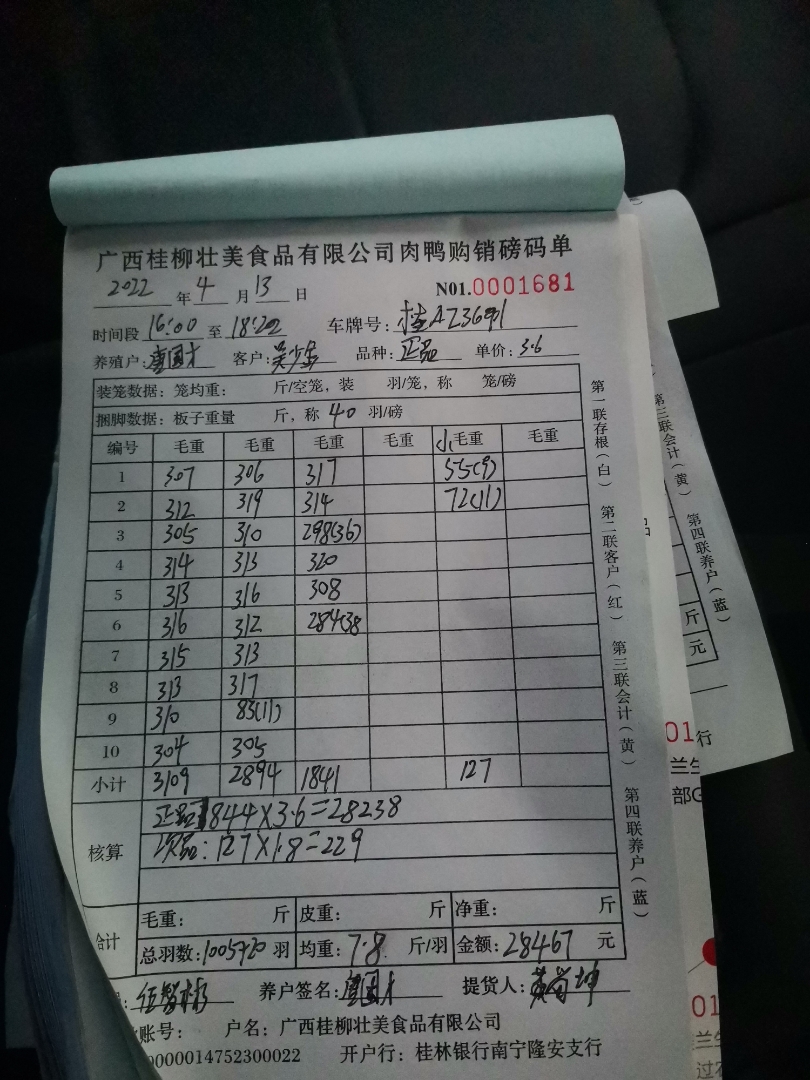 广西桂柳壮美食品有限公司肉鸭购销磅码单
2022 年 4 月 13 日 N01.0001681
时间段 16:00 至 18:20 车牌号:
养殖户: 唐国才 客户: 品种: 正品 单价: 3.6
装笼数据: 笼均重: 斤/空笼, 装 羽/笼, 称 笼/磅
捆脚数据: 板子重量 斤, 称 40 羽/磅
编号 毛重 毛重 毛重 毛重 小毛重 毛重
1 307 306 317 55(9)
2 312 319 314 72(11)
3 305 310 298(36)
4 314 313 320
5 313 316 308
6 316 312 284(38
7 315 313
8 313 317
9 310 83(11)
10 304 305
小计 3109 2894 1841 127
核算
正品 7844×3.6=28238
次品: 127×1.8=229
合计
毛重: 斤 皮重: 斤 净重: 斤
总羽数: 1005+20 羽 均重: 7.8 斤/羽 金额: 28467 元
养户签名: 唐国才 提货人:
账号: 户名: 广西桂柳壮美食品有限公司
000014752300022 开户行: 桂林银行南宁隆安支行
第一联存根(白) 第二联客户(红) 第三联会计(黄) 第四联养户(蓝)
第三联会计(黄) 第四联养户(蓝)
斤
元
01 行
兰生
部G
01
兰生